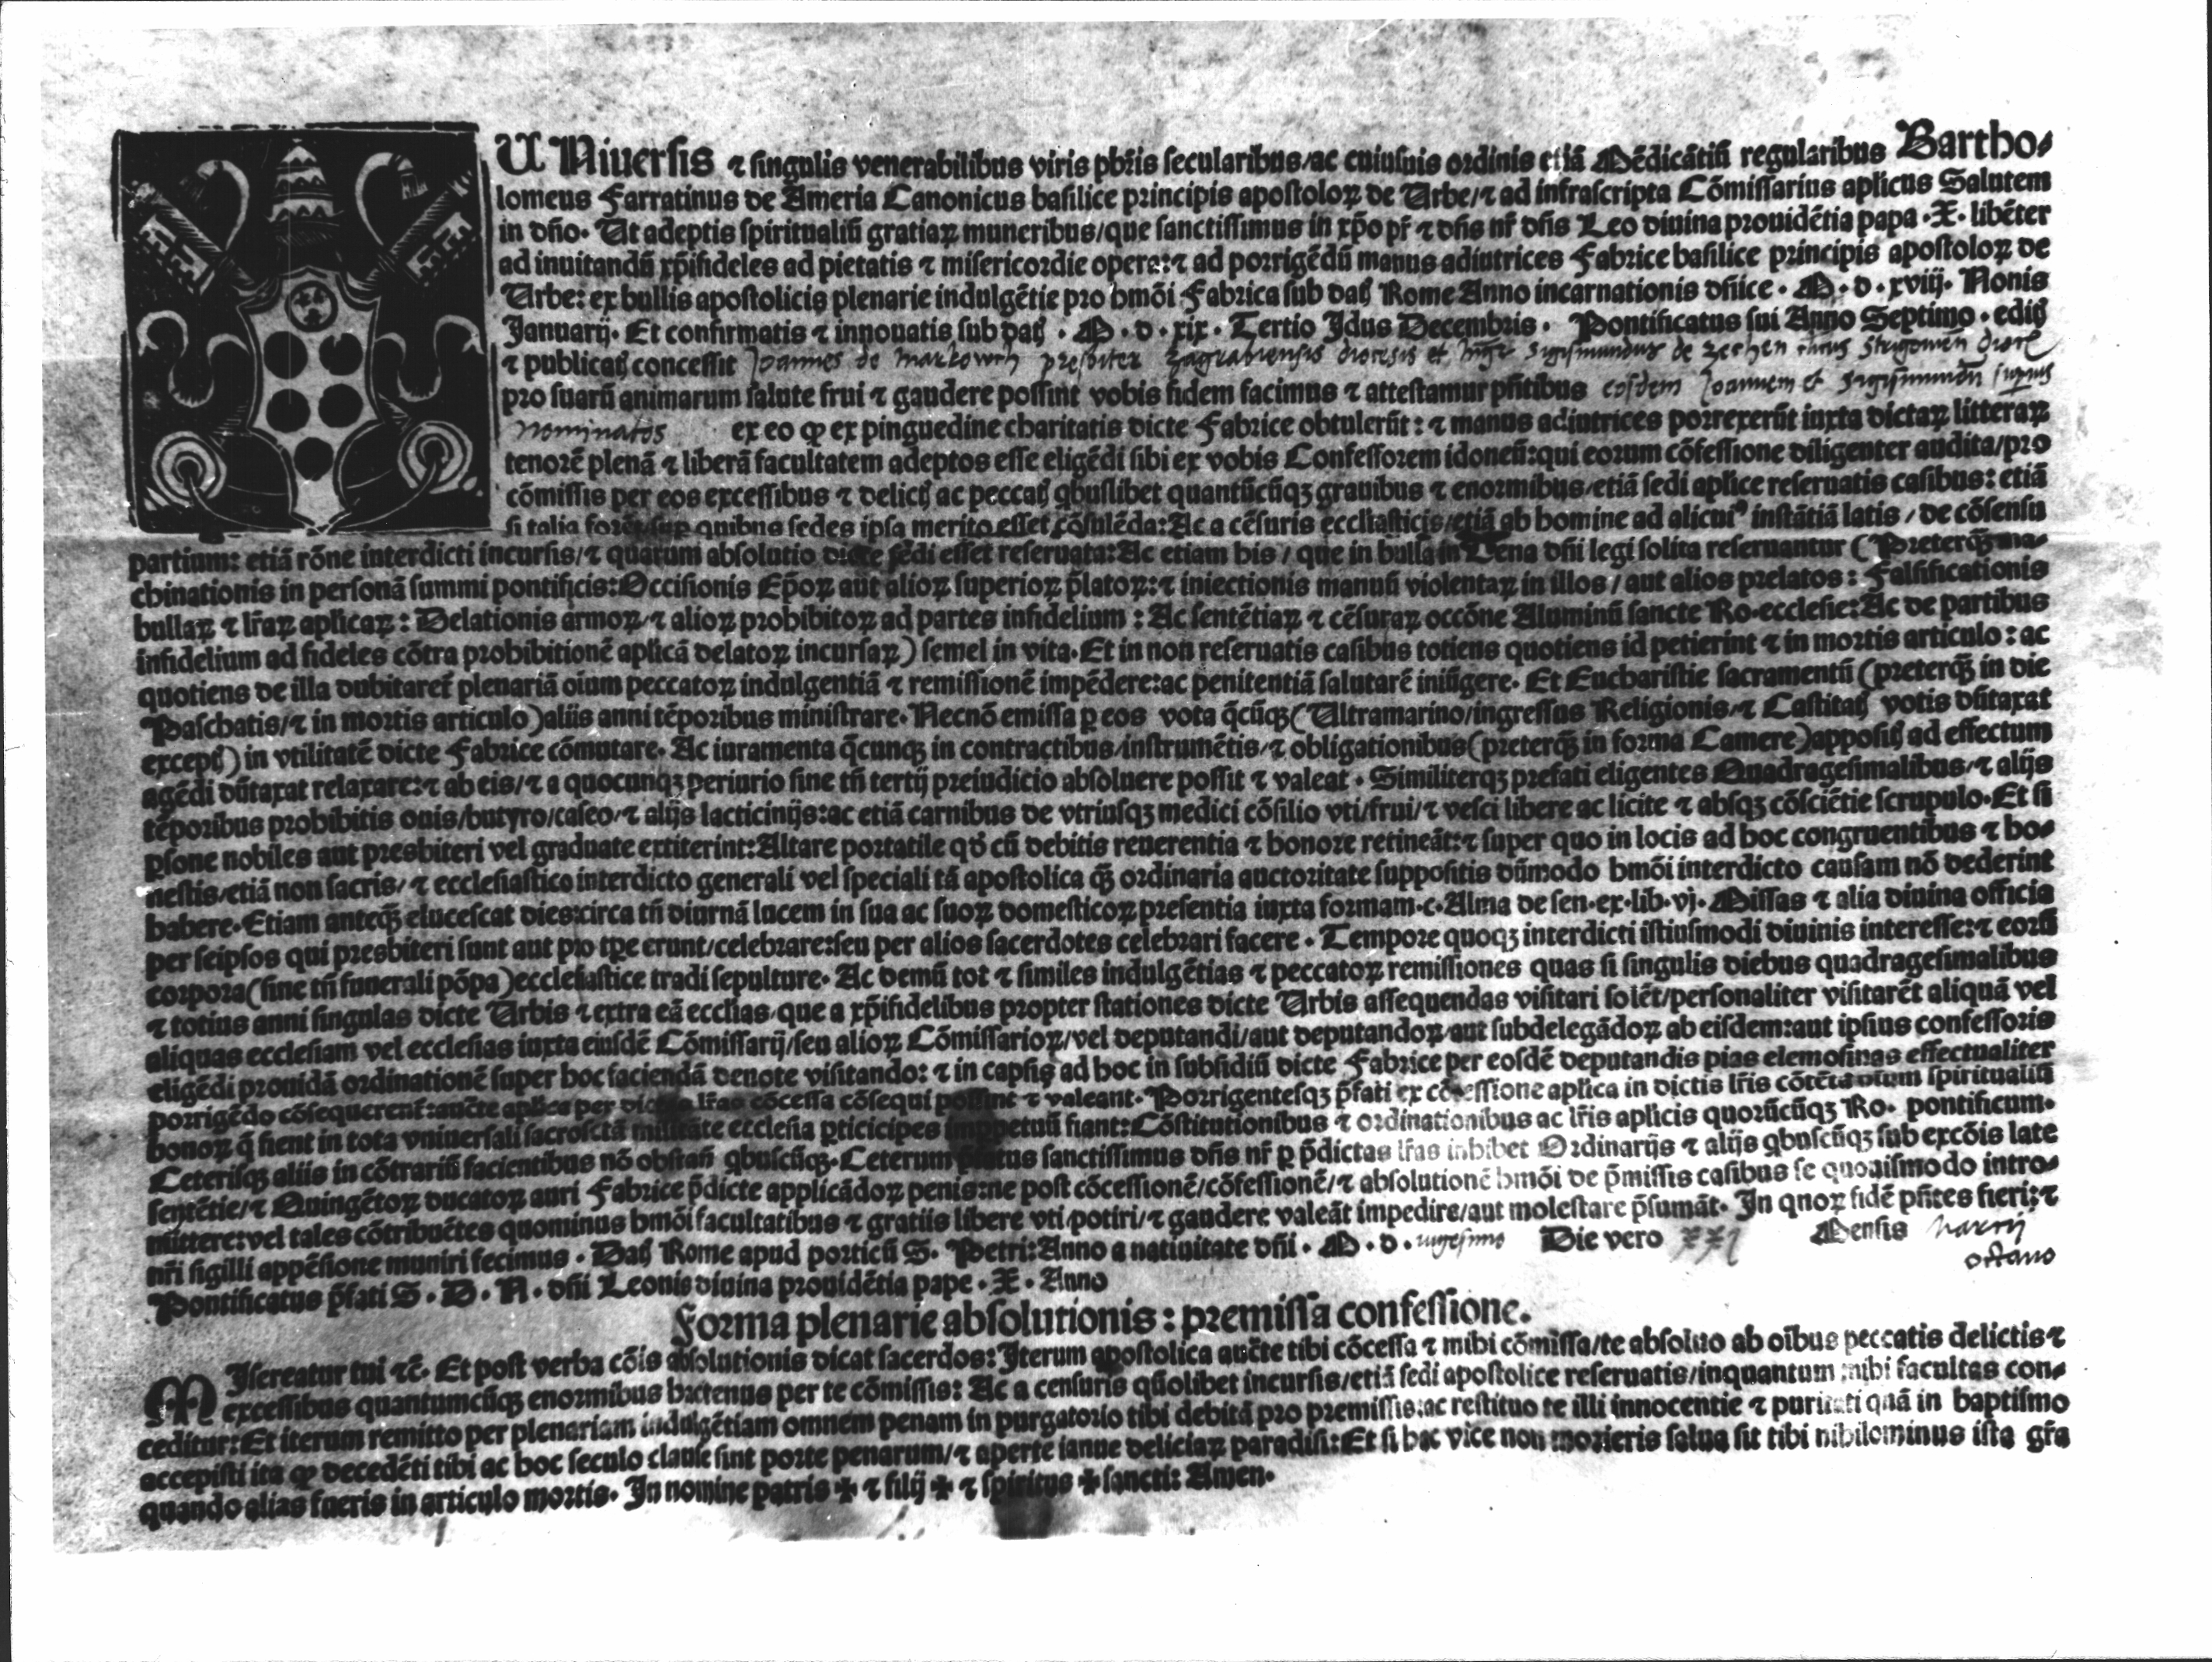 UNiuersis ⁊ singulis venerabilibus viris pbr̄is secularibus/ac cuiusuis ordinis etiā Mēdicātiū regularibus Bartho⸗
lomeus Farratinus de Ameria Canonicus basilice principis apostoloꝝ de Urbe/⁊ ad infrascripta Cōmissarius aplicus Salutem
in dn̄o. Ut adeptis spiritualiū gratiaꝝ muneribus/que sanctissimus in xp̄o pr̄ ⁊ dn̄s nr̄ dn̄s Leo diuina prouidētia papa .X. libēter
ad inuitandū xp̄ifideles ad pietatis ⁊ misericordie opera:⁊ ad porrigēdū manus adiutrices Fabrice basilice principis apostoloꝝ de
Urbe: ex bullis apostolicis plenarie indulgētie pro hmōi Fabrica sub datꝭ Rome Anno incarnationis dn̄ice . M . d . xviij. Nonis
Januarij. Et confirmatis ⁊ innouatis sub datꝭ . M . d . xix . Tertio Idus Decembris . Pontificatus sui Anno Septimo . editꝭ
⁊ publicatꝭ concessit Joannes de Markowch presbiter zagrabiensis diocesis et mgr Sigismundus de zechen Strigonien̄ dioc
pro suarū animarum salute frui ⁊ gaudere possint vobis fidem facimus ⁊ attestamur pn̄tibus eosdem Joannem et Sigismundū supius
nominatos ex eo ꝙ ex pinguedine charitatis dicte Fabrice obtulerūt : ⁊ manus adiutrices porrexerūt iuxta dictaꝝ litteraꝝ
tenorē plenā ⁊ liberā facultatem adeptos esse eligēdi sibi ex vobis Confessorem idoneū:qui eorum cōfessione diligenter audita/pro
cōmissis per eos excessibus ⁊ delictꝭ ac peccatꝭ qbuslibet quantūcūqꝫ grauibus ⁊ enormibus/etiā sedi aplice reseruatis casibus: etiā
si talia forēt/sup quibus sedes ipsa merito esset cōsulēda:Ac a cēsuris ecclīasticis/etiā ab homine ad alicuiꝰ instātiā latis / de cōsensu
partium: etiā rōne interdicti incursis/⁊ quarum absolutio dicte sedi esset reseruata:Ac etiam his / que in bulla in Cena dn̄i legi solita reseruantur (Preterqꝫ ma⸗
chinationis in personā summi pontificis:Occisionis Ep̄oꝝ aut alioꝝ superioꝝ p̄latoꝝ:⁊ iniectionis manuū violentaꝝ in illos / aut alios prelatos : Falsificationis
bullaꝝ ⁊ lr̄aꝝ aplicaꝝ : Delationis armoꝝ/⁊ alioꝝ prohibitoꝝ ad partes infidelium : Ac sentētiaꝝ ⁊ cēsuraꝝ occōne Aluminū sancte Ro.ecclesie:Ac de partibus
infidelium ad fideles cōtra prohibitionē aplicā delatoꝝ incursaꝝ) semel in vita.Et in non reseruatis casibus totiens quotiens id petierint ⁊ in mortis articulo : ac
quotiens de illa dubitaret̄ plenariā oīum peccatoꝝ indulgentiā ⁊ remissionē impēdere:ac penitentiā salutarē iniūgere. Et Eucharistie sacramentū (preterqꝫ in die
Paschatis/⁊ in mortis articulo) aliis anni tēporibus ministrare.Necnō emissa p eos vota q̄cūqꝫ (Ultramarino/ingressus Religionis/⁊ Castitatꝭ votis dūtaxat
exceptꝭ) in vtilitatē dicte Fabrice cōmutare. Ac iuramenta q̄cunqꝫ in contractibus/instrumētis/⁊ obligationibus (preterqꝫ in forma Camere) appositꝭ ad effectum
agēdi dūtaxat relaxare:⁊ ab eis/⁊ a quocunqꝫ periurio sine tn̄ tertij preiudicio absoluere possit ⁊ valeat . Similiterqꝫ prefati eligentes Quadragesimalibus/⁊ alijs
tēporibus prohibitis ouis/butyro/caseo/⁊ alijs lacticinijs:ac etiā carnibus de vtriusqꝫ medici cōsilio vti/frui/⁊ vesci libere ac licite ⁊ absqꝫ cōsciētie scrupulo.Et si
psone nobiles aut presbiteri vel graduate extiterint:Altare portatile qd̄ cū debitis reuerentia ⁊ honore retineāt:⁊ super quo in locis ad hoc congruentibus ⁊ ho⸗
nestis/etiā non sacris/ ⁊ ecclesiastico interdicto generali vel speciali tā apostolica qꝫ ordinaria auctoritate suppositis dūmodo hmōi interdicto causam nō dederint
habere.Etiam anteqꝫ elucescat dies:circa tn̄ diurnā lucem in sua ac suoꝝ domesticoꝝ presentia iuxta formam.c.Alma de sen.ex.lib.vj. Missas ⁊ alia diuina officia
per seipsos qui presbiteri sunt aut pro tp̄e erunt/celebrare:seu per alios sacerdotes celebrari facere . Tempore quoqꝫ interdicti istiusmodi diuinis interesse:⁊ eorū
corpora(sine tn̄ funerali pōpa)ecclesiastice tradi sepulture. Ac demū tot ⁊ similes indulgētias ⁊ peccatoꝝ remissiones quas si singulis diebus quadragesimalibus
⁊ totius anni singulas dicte Urbis ⁊ extra eā ecclīas/que a xp̄ifidelibus propter stationes dicte Urbis assequendas visitari solēt/personaliter visitarēt aliquā vel
aliquas ecclesiam vel ecclesias iuxta eiusdē Cōmissarij/seu alioꝝ Cōmissarioꝝ/vel deputandi/aut deputandoꝝ/aut subdelegādoꝝ ab eisdem:aut ipsius confessoris
eligēdi prouidā ordinationē super hoc faciendā deuote visitando: ⁊ in capsis ad hoc in subsidiū dicte Fabrice per eosdē deputandis pias elemosinas effectualiter
porrigēdo cōsequerent̄:aucte aplica per dictas lr̄as cōcessa cōsequi possint ⁊ valeant. Porrigentesqꝫ p̄fati ex cōcessione aplica in dictis lr̄is cōtēta oīum spiritualiū
bonoꝝ q̄ fient in tota vniuersali sacrosctā militāte ecclesia pticicipes imppetuū fiant:Cōstitutionibus ⁊ ordinationibus ac lr̄is aplicis quorūcūqꝫ Ro. pontificum.
Ceterisqꝫ aliis in cōtrariū facientibus nō obstan̄ qbuscūqꝫ.Ceterum p̄fatus sanctissimus dn̄s nr̄ p p̄dictas lr̄as inhibet Ordinarijs ⁊ alijs qbuscūqꝫ sub excōis late
sentētie/⁊ Quingētoꝝ ducatoꝝ auri Fabrice p̄dicte applicādoꝝ penis:ne post cōcessionē/cōfessionē/⁊ absolutionē hmōi de p̄missis casibus se quouismodo intro⸗
mittere:vel tales cōtribuētes quominus hmōi facultatibus ⁊ gratiis libere vti/potiri/⁊ gaudere valeāt impedire/aut molestare p̄sumāt. In quoꝝ fidē pn̄tes fieri:⁊
nr̄i sigilli appēsione muniri fecimus . Datꝭ Rome apud porticū S. Petri:Anno a natiuitate dn̄i . M . d . uigesimo Die vero xxj Mensis Marcij
Pontificatus p̄fati S . D . N . dn̄i Leonis diuina prouidētia pape . X . Anno octauo
Forma plenarie absolutionis : premissa confessione.
MIsereatur tui ⁊c̄. Et post verba cōis absolutionis dicat sacerdos: Iterum apostolica aucte tibi cōcessa ⁊ mihi cōmissa/te absoluo ab oībus peccatis delictis⁊
excessibus quantumcūqꝫ enormibus hactenus per te cōmissis: Ac a censuris quōlibet incursis/etiā sedi apostolice reseruatis/inquantum mihi facultas con⸗
ceditur:Et iterum remitto per plenariam indulgētiam omnem penam in purgatorio tibi debitā pro premissis:ac restituo te illi innocentie ⁊ puritati quā in baptismo
accepisti ita ꝙ decedēti tibi ac hoc seculo clause sint porte penarum/⁊ aperte ianue deliciaꝝ paradisi:Et si hac vice non morieris salua sit tibi nihilominus ista gr̄a
quando alias fueris in articulo mortis. In nomine patris ✠ ⁊ filij ✠ ⁊ spiritus ✠ sancti: Amen.